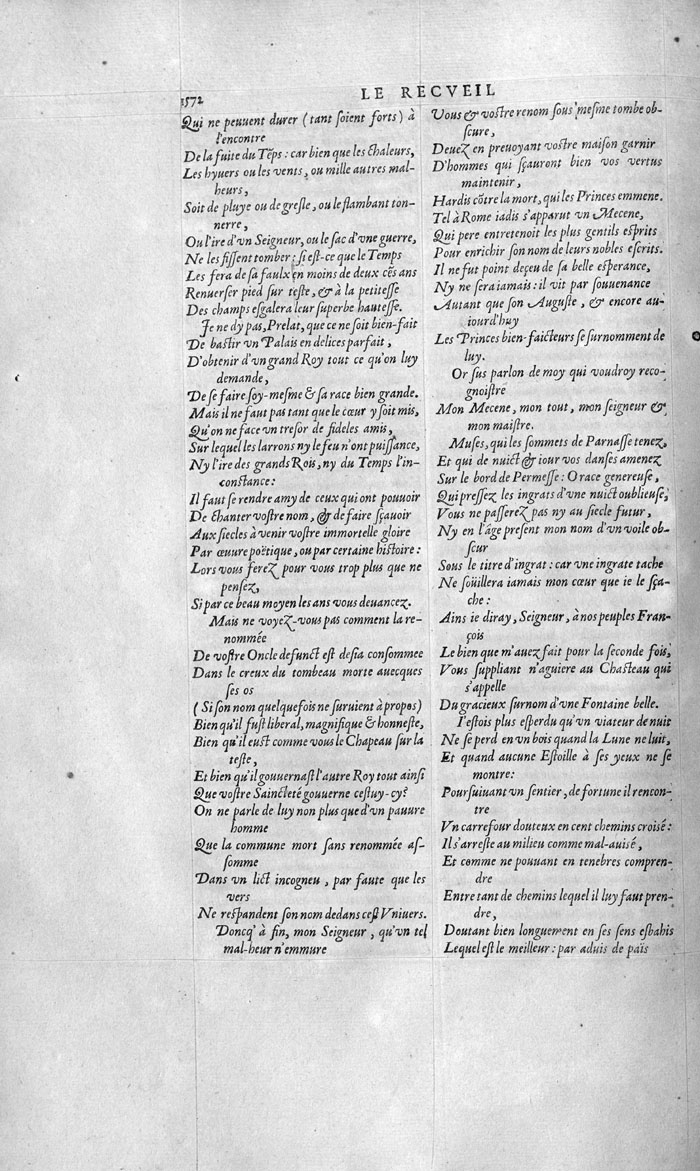 1572
LE RECVEIL
Qui ne peuuent durer (tant ſoient forts) à
l'encontre
De la fuite du Tẽps : car bien que les chaleurs,
Les hyuers ou les vents, ou mille autres mal-
heurs,
Soit de pluye ou de greſle, ou le flambant ton-
nerre,
Ou l'ire d'vn Seigneur, ou le ſac d'vne guerre,
Ne les fiſſent tomber : ſi eſt-ce que le Temps
Les fera de ſa faulx en moins de deux cẽs ans
Renuerſer pied ſur teſte, & à la petiteſſe
Des champs eſgalera leur ſuperbe hauteſſe.
Ie ne dy pas, Prelat, que ce ne ſoit bien-fait
De baſtir vn Palais en delices parfait,
D'obtenir d'vn grand Roy tout ce qu'on luy
demande,
De ſe faire ſoy-meſme & ſa race bien grande.
Mais il ne faut pas tant que le cœur y ſoit mis,
Qu'on ne face vn treſor de fideles amis,
Sur lequel les larrons ny le feu n'ont puiſſance,
Ny l'ire des grands Rois, ny du Temps l'in-
conſtance :
Il faut ſe rendre amy de ceux qui ont pouuoir
De chanter voſtre nom, & de faire ſçauoir
Aux ſiecles à venir voſtre immortelle gloire
Par œuure poëtique, ou par certaine hiſtoire :
Lors vous ferez pour vous trop plus que ne
penſez,
Si par ce beau moyen les ans vous deuancez.
Mais ne voyez-vous pas comment la re-
nommée
De voſtre Oncle defunct eſt deſia conſommee
Dans le creux du tombeau morte auecques
ſes os
(Si ſon nom quelquefois ne ſuruient à propos)
Bien qu'il fuſt liberal, magnifique & honneſte,
Bien qu'il euſt comme vous le Chapeau ſur la
teſte,
Et bien qu'il gouuernaſt l'autre Roy tout ainſi
Que voſtre Saincteté gouuerne ceſtuy-cy?
On ne parle de luy non plus que d'vn pauure
homme
Que la commune mort ſans renommée aſ-
ſomme
Dans vn lict incogneu, par faute que les
vers
Ne reſpandent ſon nom dedans ceſt Vniuers.
Doncq' à fin, mon Seigneur, qu'vn tel
mal-heur n'emmure
Vous & voſtre renom ſous meſme tombe ob-
ſcure,
Deuez en preuoyant voſtre maiſon garnir
D'hommes qui ſçauront bien vos vertus
maintenir,
Hardis cõtre la mort, qui les Princes emmene.
Tel à Rome iadis s'apparut vn Mecene,
Qui pere entretenoit les plus gentils eſprits
Pour enrichir ſon nom de leurs nobles eſcrits.
Il ne fut point deçeu de ſa belle eſperance,
Ny ne ſera iamais : il vit par ſouuenance
Autant que ſon Auguſte, & encore au-
iourd'huy
Les Princes bien-faicteurs ſe ſurnomment de
luy.
Or ſus parlon de moy qui voudroy reco-
gnoiſtre
Mon Mecene, mon tout, mon ſeigneur &
mon maiſtre.
Muſes, qui les ſommets de Parnaſſe tenez,
Et qui de nuict & iour vos danſes amenez
Sur le bord de Permeſſe : O race genereuſe,
Qui preſſez les ingrats d'vne nuict oublieuſe,
Vous ne paſſerez pas ny au ſiecle futur,
Ny en l'âge preſent mon nom d'vn voile ob-
ſcur
Sous le titre d'ingrat : car vne ingrate tache
Ne ſoüillera iamais mon cœur que ie le ſça-
che :
Ains ie diray, Seigneur, à nos peuples Fran-
çois
Le bien que m'auez fait pour la ſeconde fois,
Vous ſuppliant n'aguiere au Chaſteau qui
s'appelle
Du gracieux ſurnom d'vne Fontaine belle.
I'eſtois plus eſperdu qu'vn viateur de nuit
Ne ſe perd en vn bois quand la Lune ne luit,
Et quand aucune Eſtoille à ſes yeux ne ſe
montre:
Pourſuiuant vn ſentier, de fortune il rencon-
tre
Vn carrefour douteux en cent chemins croiſé :
Il s'arreſte au milieu comme mal-auiſé,
Et comme ne pouuant en tenebres compren-
dre
Entre tant de chemins lequel il luy faut pren-
dre,
Doutant bien longuement en ſes ſens eſbahis
Lequel eſt le meilleur : par aduis de païs